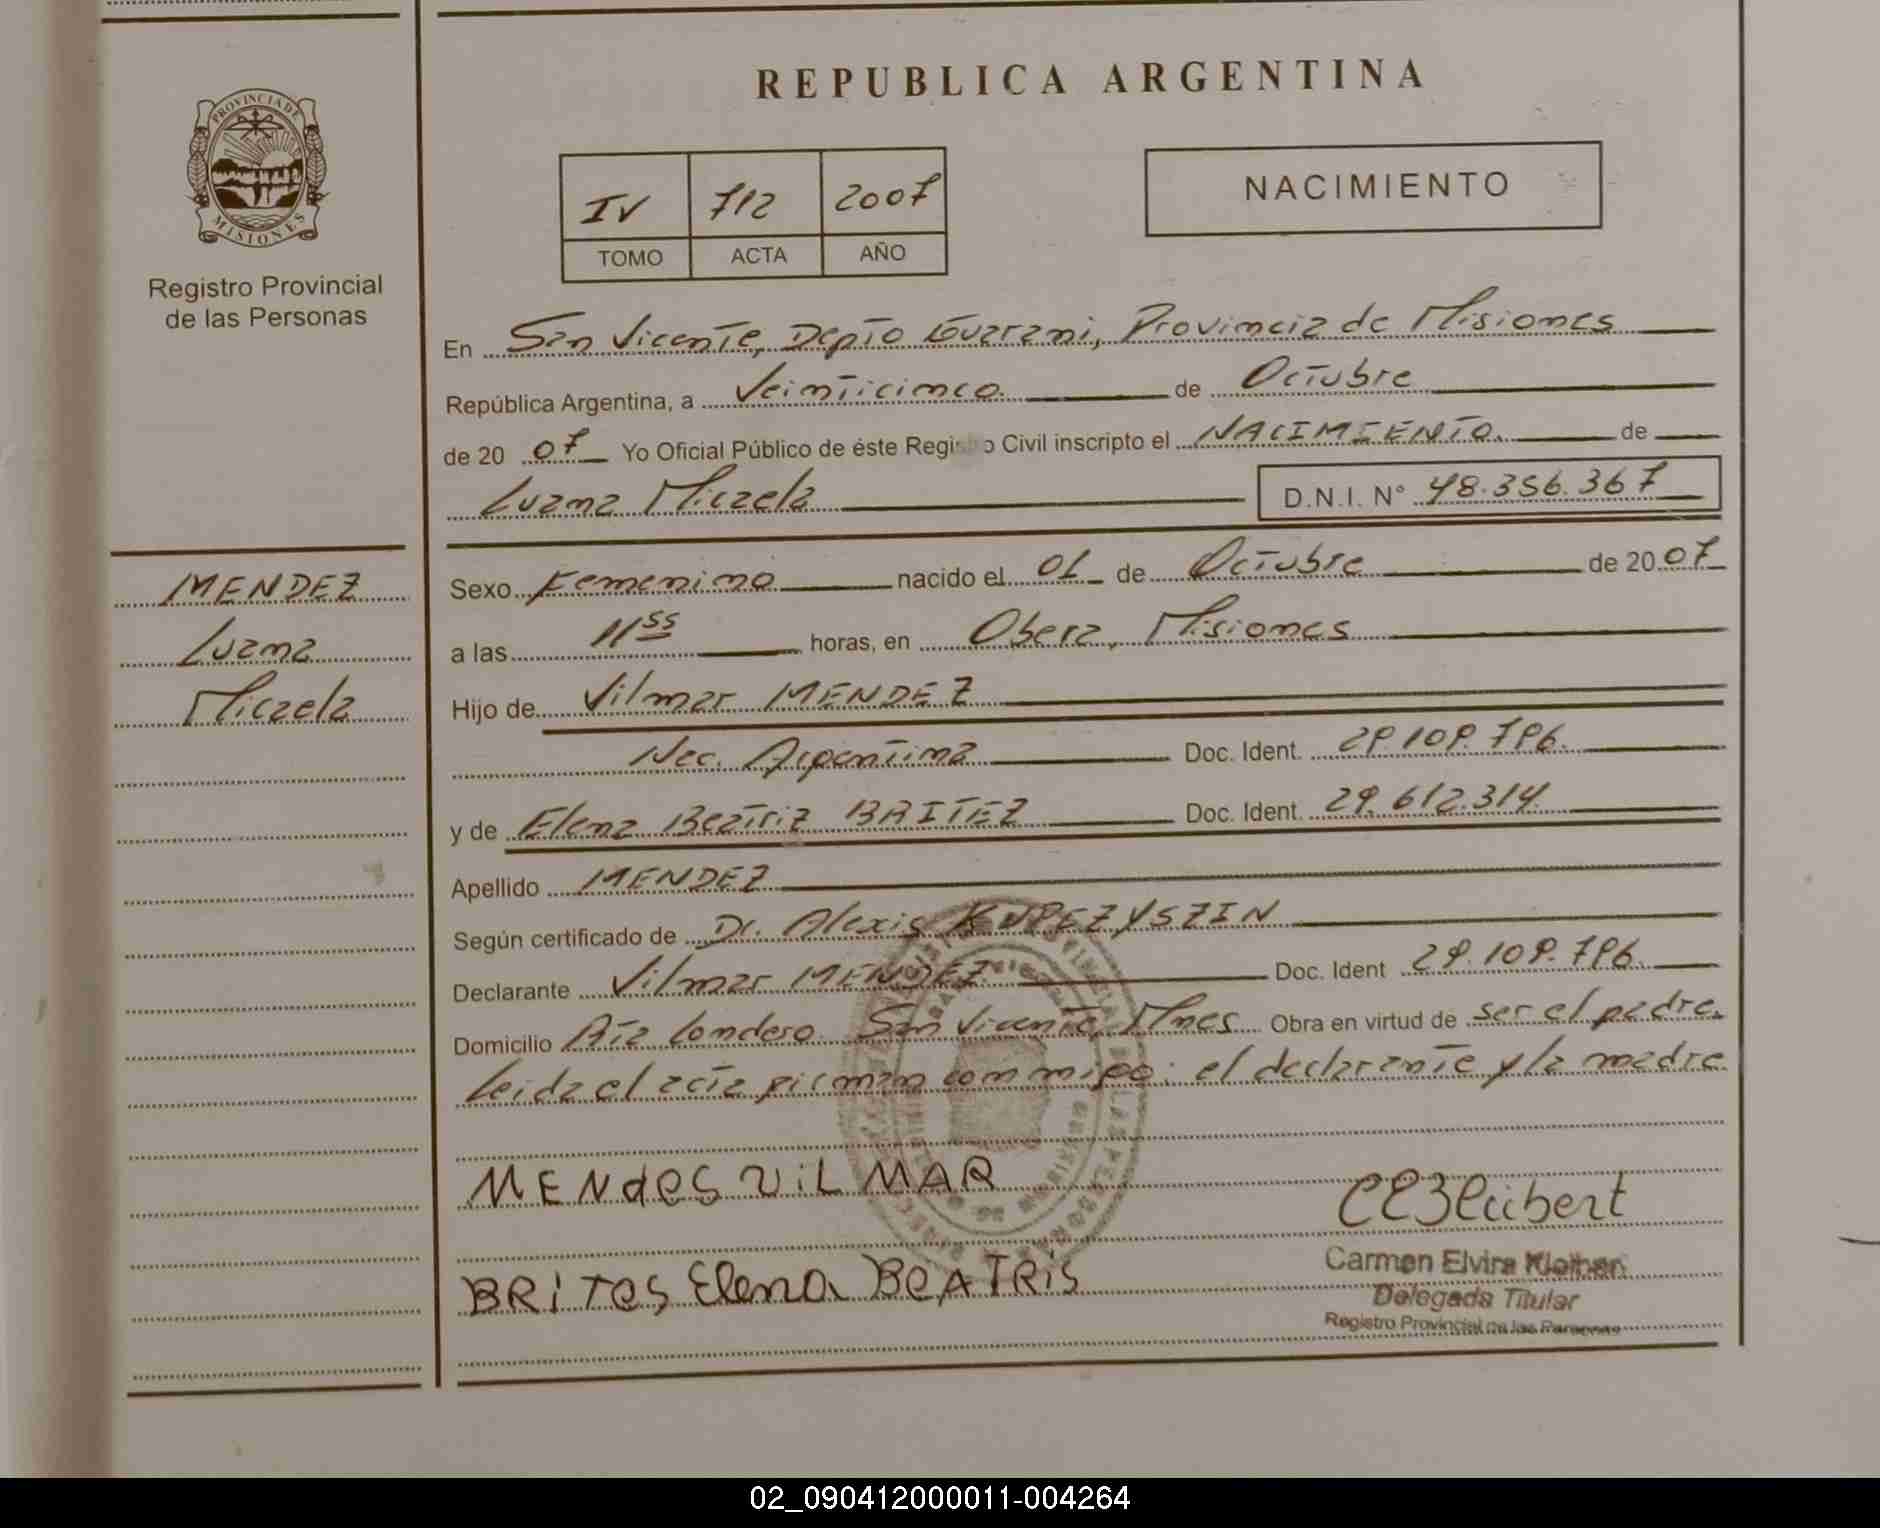 REPUBLICA ARGENTINA
PROVINCIA DE
MISIONES
Registro Provincial
de las Personas
IV 712 2007
TOMO ACTA AÑO
NACIMIENTO
En San Vicente, Depto Guarani, Provincia de Misiones
República Argentina, a Veinticinco. de Octubre
de 2007 Yo Oficial Público de éste Registro Civil inscripto el NACIMIENTO. de
Luana Micaela D.N.I. N° 48.356.367
MENDEZ
Luana
Micaela
Sexo Femenino nacido el 01 de Octubre de 2007
a las 11 55 horas, en Obera, Misiones
Hijo de Vilmar MENDEZ
Nac. Argentina Doc. Ident. 29.109.796.
y de Elena Beatriz BRITEZ Doc. Ident. 29.612.314.
Apellido MENDEZ
Según certificado de Dr. Alexis
Declarante Vilmar MENDEZ. Doc. Ident 29.109.796.
Domicilio Londero. San Vicente, Mnes Obra en virtud de ser el padre.
Leida el acta firman conmigo: el declarante y la madre
MENdeS ViLMAR
BRiTeS Elena BEATRiS
Carmen Elvira
Delegada Titular
Registro Provincial de las Personas
02_090412000011-004264